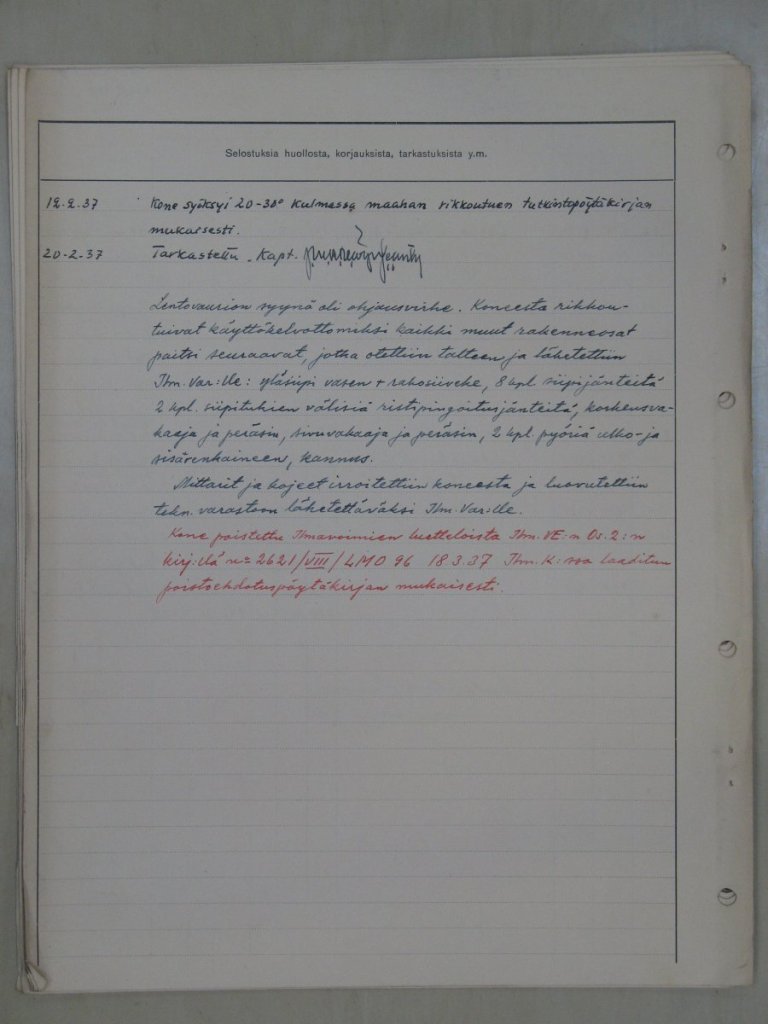 Selostuksia huollosta, korjauksista, tarkastuksista y.m.
12.2.37 Kone syöksyi 20-30° kulmassa maahan rikkoutuen tutkintopöytäkirjan
mukaisesti.
20-2-37 Tarkastettu. Kapt.
Lentovaurion syynä oli ohjausvirhe. Koneesta rikkou-
tuivat käyttökelvottomiksi kaikki muut rakenneosat
paitsi seuraavat, jotka otettiin talteen ja lähetettiin
Ilm. Var:lle: yläsiipi vasen + rakosiiveke, 8 kpl. siipijänteitä
2 kpl. siipitukien välisiä ristipingoitusjänteitä, korkeusva-
kaaja ja peräsin, sivuvakaaja ja peräsin, 2 kpl. pyöriä ulko- ja
sisärenkaineen, kannus.
Mittarit ja kojeet irroitettiin koneesta ja luovutettiin
tekn. varastoon lähetettäväksi Ilm. Var:lle.
Kone poistettu Ilmavoimien luetteloista Ilm. VE:n Os. 2:n
kirj:llä n:o 2621/VIII/LMO 96 18.3.37 Ilm. K:ssa laaditun
poistoehdotuspöytäkirjan mukaisesti.